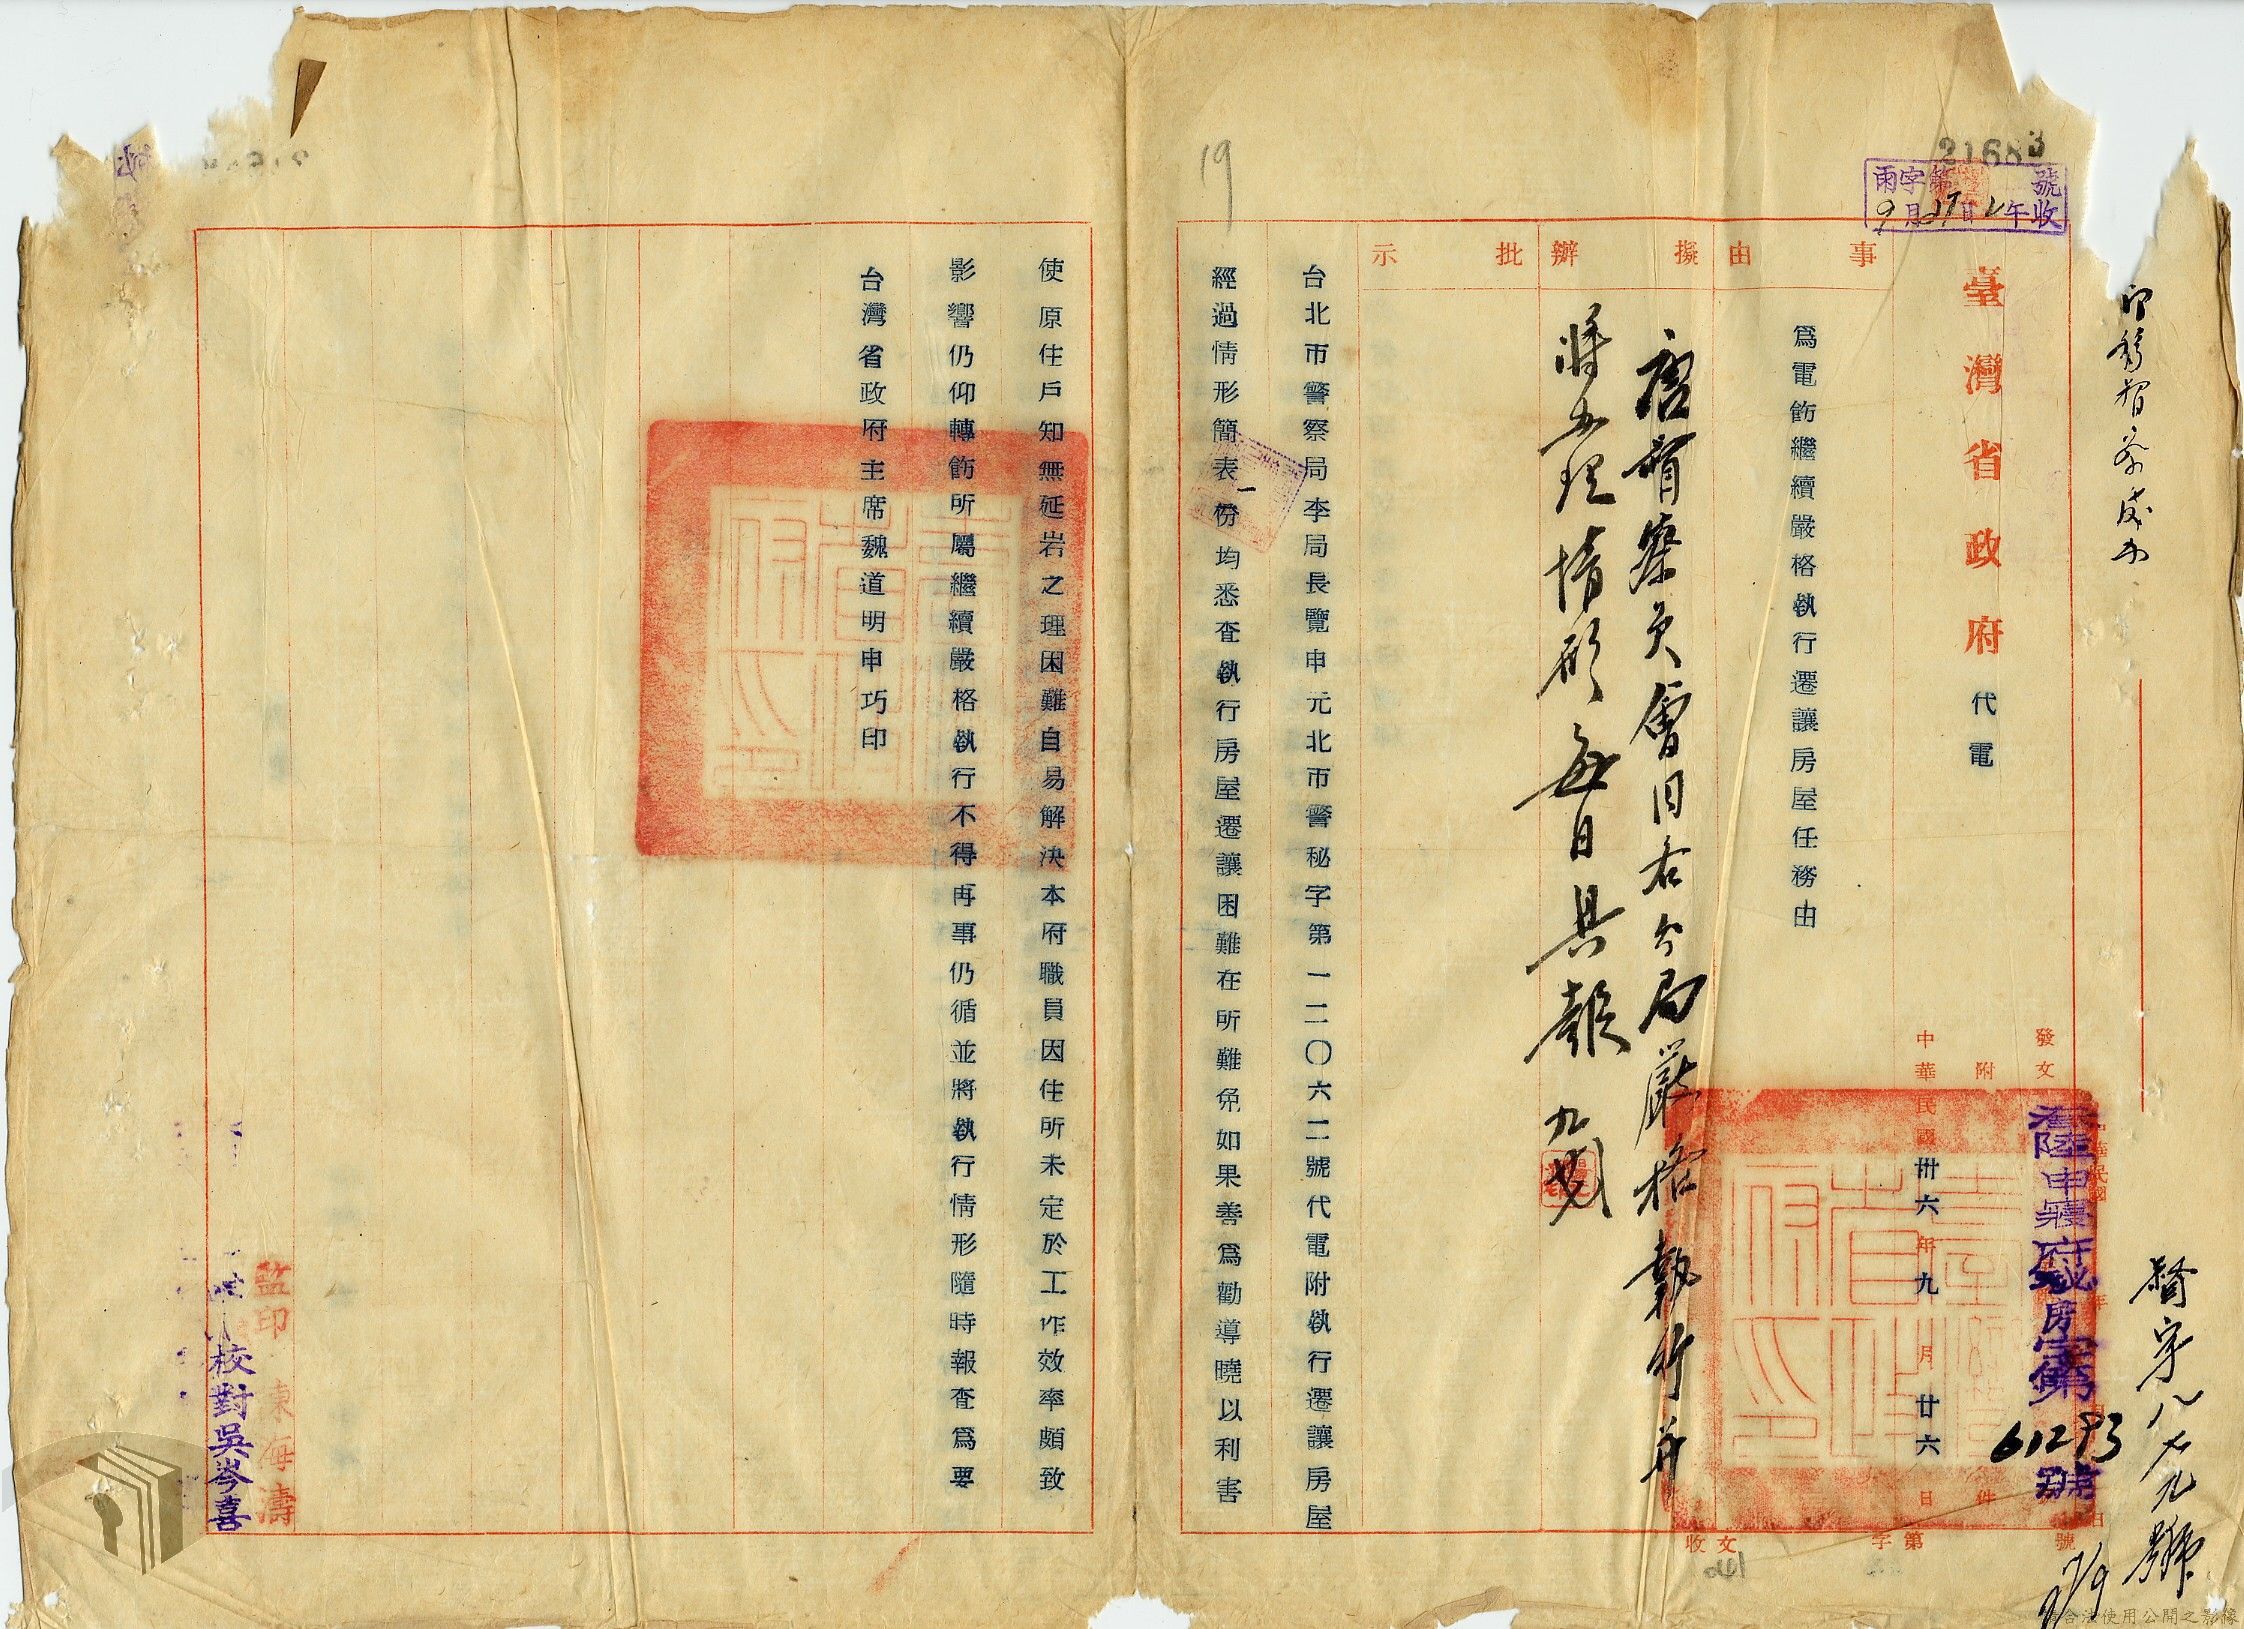 21683
雨字第 號
9月27日 午收
臺灣省政府代電
事由
擬辦
批示
爲電飭繼續嚴格執行遷讓房屋任務由
發文
附件
中華民國卅六年九月廿六日
申寢府秘房字第
61293
號
收文 字第 號
唐督察員會同右分局嚴格執行並
將辦理情形每日具報
字八七九號
27/9
19
台北市警察局李局長覽申元北市警秘字第一二〇六二號代電附執行遷讓房屋
經過情形簡表一份均悉查執行房屋遷讓困難在所難免如果善爲勸導曉以利害
使原住戶知無延岩之理困難自易解決本府職員因住所未定於工作效率頗致
影響仍仰轉飭所屬繼續嚴格執行不得再事仍循並將執行情形隨時報查爲要
台灣省政府主席魏道明申巧印
監印 陳海濤
校對吳岑喜
合法使用公開之影像